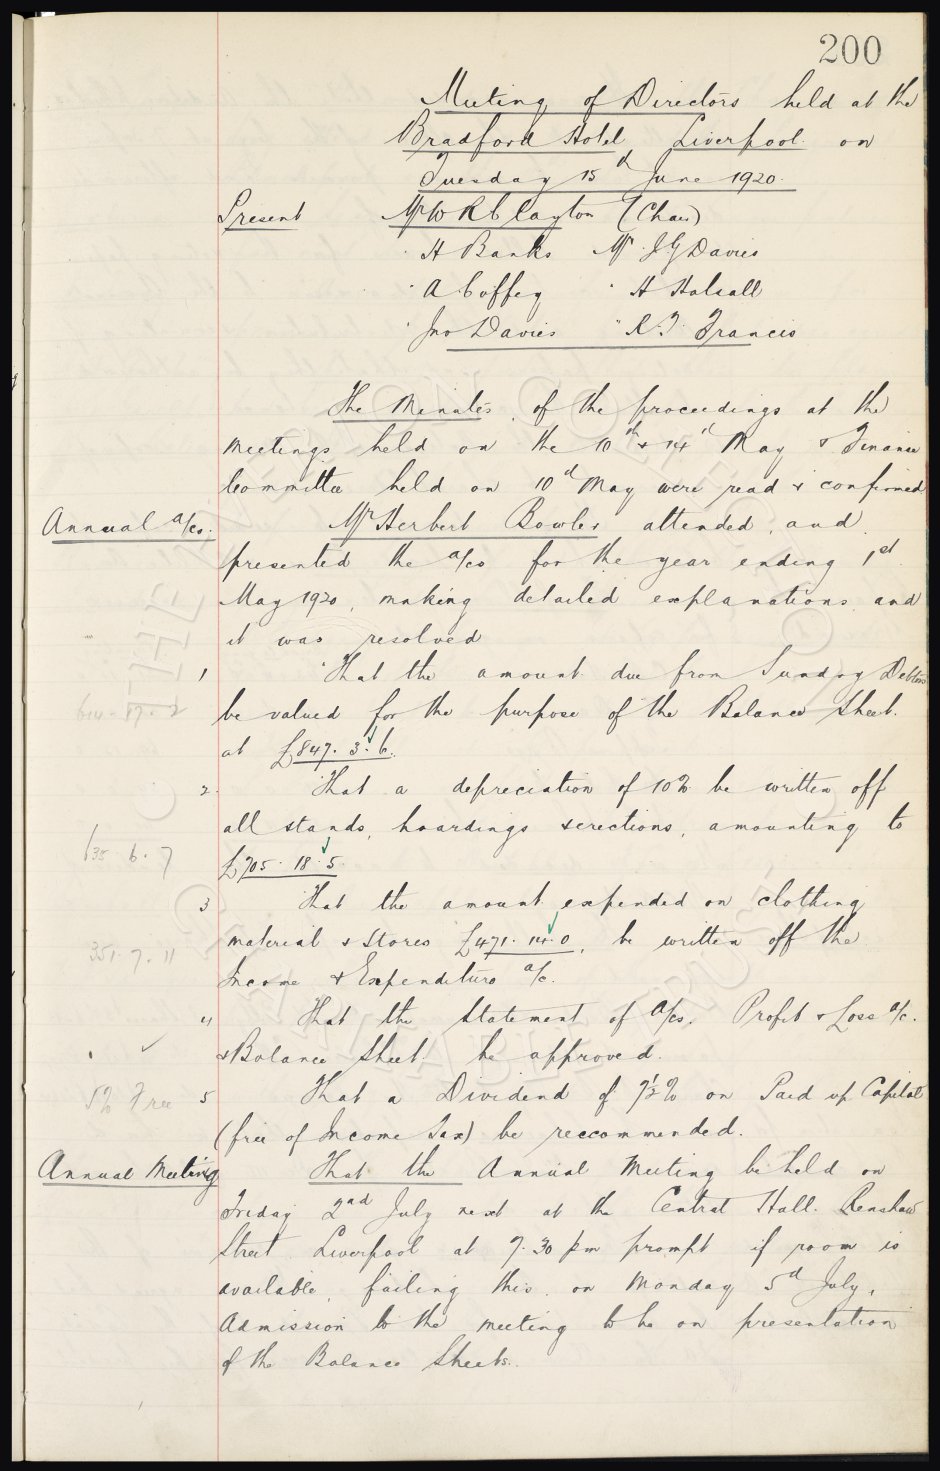 200
Meeting of Directors held at the
Bradford Hotel, Liverpool. on
Tuesday 15th June 1920.
Present Mr W R Clayton (Chair)
" H Banks Mr J G Davies
" A Coffey " H Halsall
" Jno Davies " R. T. Francis
The Minutes, of the proceedings at the
meetings held on the 10th & 14th May & Finance
Committee held on 10th May were read & confirmed
Annual a/cs. Mr Herbert Bowler attended, and
presented the a/cs for the year ending 1st
May 1920, making detailed explanations and
it was resolved
1 That the amount due from Sundry Debtors
614 - 17 - 2 be valued for the purpose of the Balance Sheet.
at £847. 3. 6.
2. That a depreciation of 10% be written off
all stands, hoardings & erections, amounting to
635 . 6 . 7 £705. 18. 5.
3 That the amount expended on clothing
351. 7. 11 material & stores £471. 14. 0, be written off the
Income & Expenditure a/c.
4 That the Statement of a/cs. Profit & Loss a/c.
& Balance Sheet be approved.
5% Free 5 That a Dividend of 7½% on Paid up Capital
(free of Income Tax) be reccommended.
Annual Meeting That the Annual Meeting be held on
Friday 2nd July next at the Central Hall. Renshaw
Street Liverpool at 7.30 pm prompt if room is
available, failing this. on Monday 5th July,
Admission to the meeting to be on presentation
of the Balance Sheets.